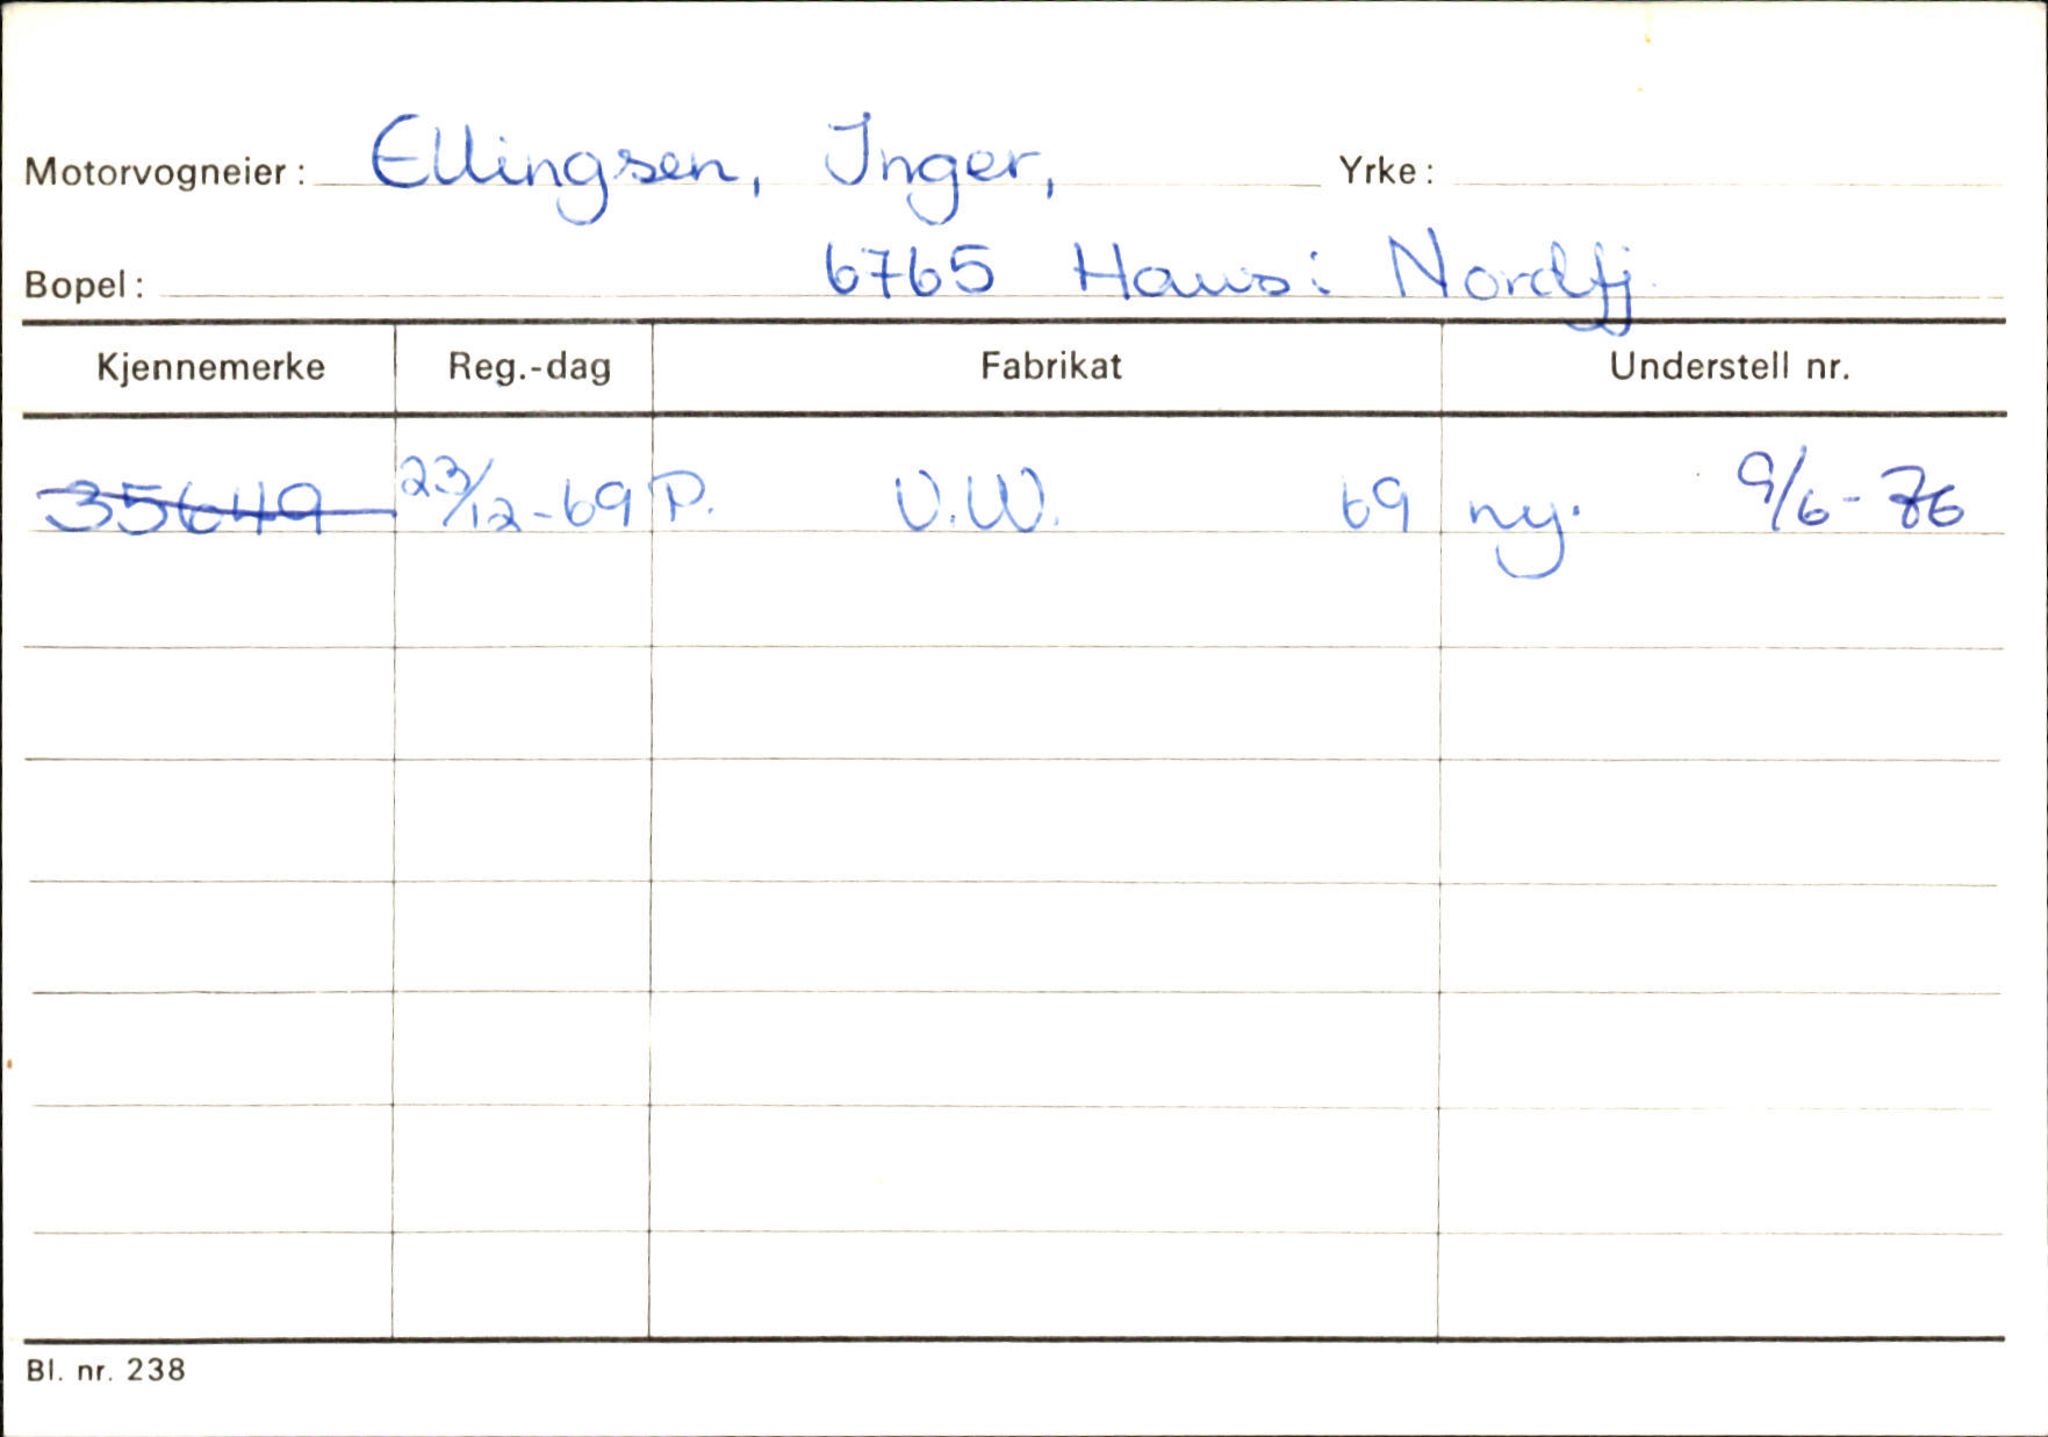 Motorvogneier: Ellingsen, Inger, Yrke:
Bopel: 6765 Haus i Nordfj.
Kjennemerke Reg.-dag Fabrikat Understell nr.
35649 23/12-69 P. V.W. 69 ny. 9/6-76
Bl. nr. 238